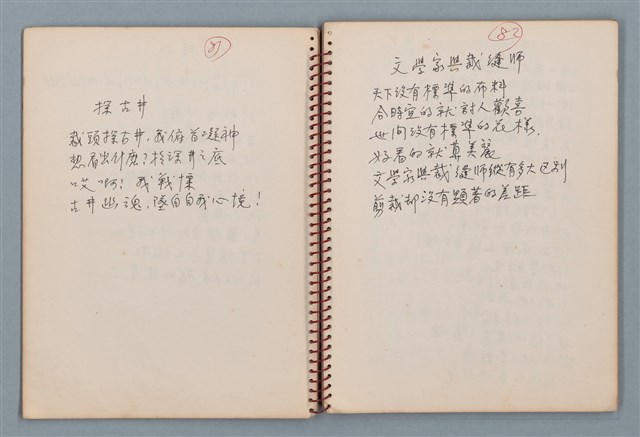 81
探古井
我頭探古井,我俯首
想看出什麽?於深井之底
哎啊!我戰慄
古井幽魂,墜自自我心境!
82
文學家與裁縫师
天下沒有標準的布料
合時宜的就討人歡喜
世间沒有標準的花樣,
好看的就算美麗
文學家與裁縫师縱有多大区别
剪裁却沒有顯著的差距